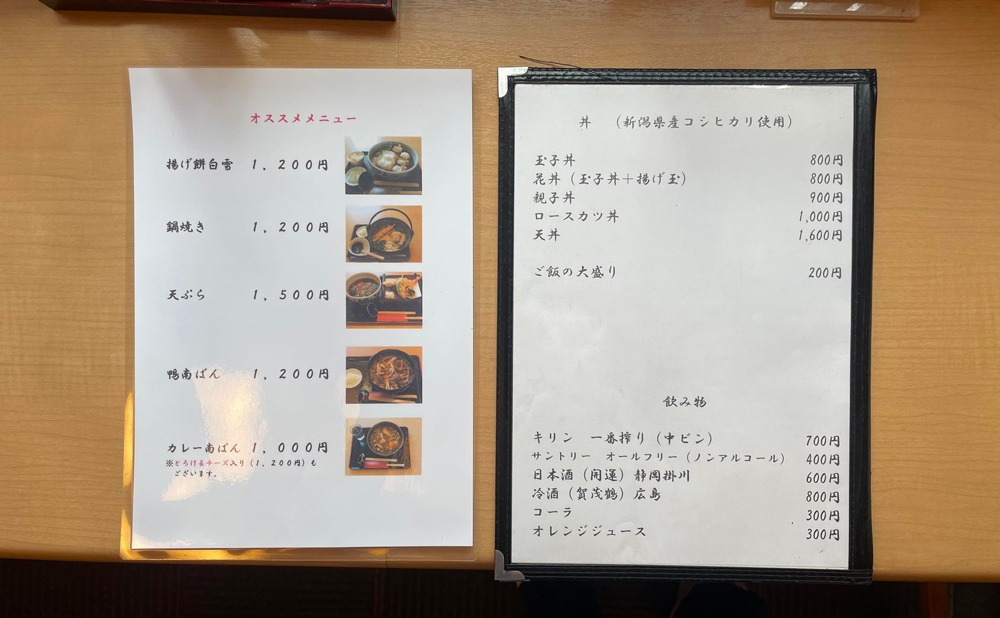 オススメメニュー
揚げ餅白雪 1,200円
鍋焼き 1,200円
天ぷら 1,500円
鴨南ばん 1,200円
カレー南ばん 1,000円
※とろけるチーズ入り(1,200円)も
ございます。
丼 (新潟県産コシヒカリ使用)
玉子丼 800円
花丼(玉子丼+揚げ玉) 800円
親子丼 900円
ロースカツ丼 1,000円
天丼 1,600円
ご飯の大盛り 200円
飲み物
キリン 一番搾り(中ビン) 700円
サントリー オールフリー(ノンアルコール) 400円
日本酒(開運)静岡掛川 600円
冷酒(賀茂鶴)広島 800円
コーラ 300円
オレンジジュース 300円